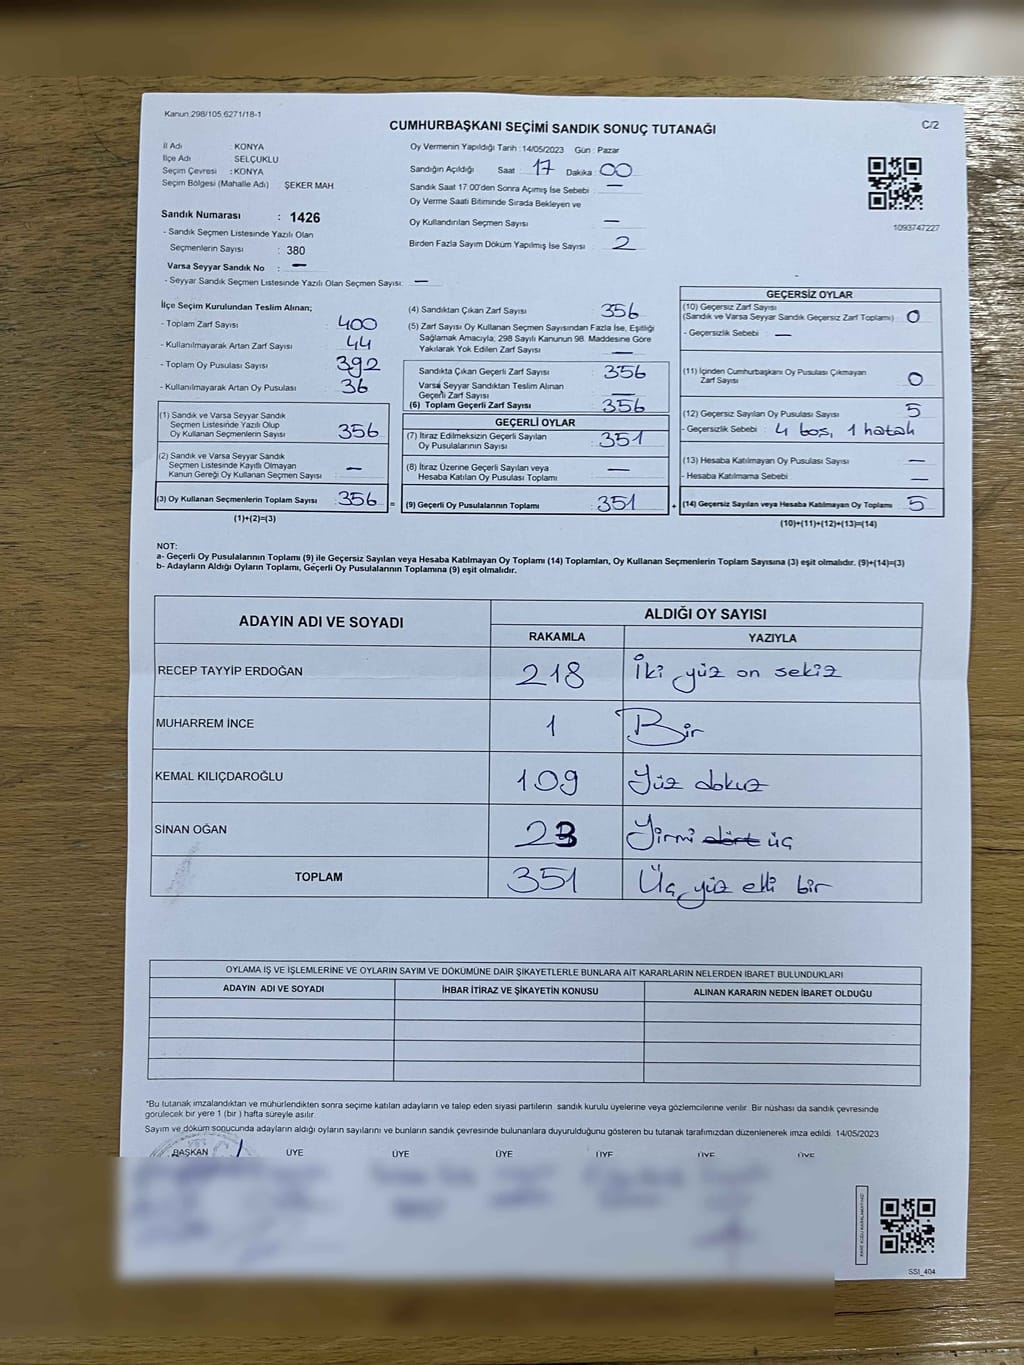 Kanun:298/105.6271/18-1
CUMHURBAŞKANI SEÇİMİ SANDIK SONUÇ TUTANAĞI
C/2
İl Adı : KONYA
İlçe Adı : SELÇUKLU
Seçim Çevresi : KONYA
Seçim Bölgesi (Mahalle Adı) ŞEKER MAH.
Sandık Numarası : 1426
- Sandık Seçmen Listesinde Yazılı Olan
Seçmenlerin Sayısı : 380
Varsa Seyyar Sandık No : —
- Seyyar Sandık Seçmen Listesinde Yazılı Olan Seçmen Sayısı: —
Oy Vermenin Yapıldığı Tarih :14/05/2023 Gün : Pazar
Sandığın Açıldığı Saat : 17 Dakika : 00
Sandık Saat 17:00'den Sonra Açılmış İse Sebebi : —
Oy Verme Saati Bitiminde Sırada Bekleyen ve
Oy Kullandırılan Seçmen Sayısı : —
Birden Fazla Sayım Döküm Yapılmış İse Sayısı : 2
1093747227
İlçe Seçim Kurulundan Teslim Alınan;
- Toplam Zarf Sayısı : 400
- Kullanılmayarak Artan Zarf Sayısı : 44
- Toplam Oy Pusulası Sayısı : 392
- Kullanılmayarak Artan Oy Pusulası : 36
(1) Sandık ve Varsa Seyyar Sandık
Seçmen Listesinde Yazılı Olup
Oy Kullanan Seçmenlerin Sayısı : 356
(2) Sandık ve Varsa Seyyar Sandık
Seçmen Listesinde Kayıtlı Olmayan
Kanun Gereği Oy Kullanan Seçmen Sayısı: —
(3) Oy Kullanan Seçmenlerin Toplam Sayısı : 356 =
(1)+(2)=(3)
(4) Sandıktan Çıkan Zarf Sayısı : 356
(5) Zarf Sayısı Oy Kullanan Seçmen Sayısından Fazla İse, Eşitliği
Sağlamak Amacıyla; 298 Sayılı Kanunun 98. Maddesine Göre
Yakılarak Yok Edilen Zarf Sayısı : —
Sandıkta Çıkan Geçerli Zarf Sayısı : 356
Varsa Seyyar Sandıktan Teslim Alınan
Geçerli Zarf Sayısı : —
(6) Toplam Geçerli Zarf Sayısı : 356
GEÇERLİ OYLAR
(7) İtiraz Edilmeksizin Geçerli Sayılan
Oy Pusulalarının Sayısı : 351
(8) İtiraz Üzerine Geçerli Sayılan veya
Hesaba Katılan Oy Pusulası Toplamı : —
(9) Geçerli Oy Pusulalarının Toplamı : 351 +
GEÇERSİZ OYLAR
(10) Geçersiz Zarf Sayısı
(Sandık ve Varsa Seyyar Sandık Geçersiz Zarf Toplamı) : 0
- Geçersizlik Sebebi : —
(11) İçinden Cumhurbaşkanı Oy Pusulası Çıkmayan
Zarf Sayısı : 0
(12) Geçersiz Sayılan Oy Pusulası Sayısı : 5
- Geçersizlik Sebebi : 4 boş, 1 hatalı
(13) Hesaba Katılmayan Oy Pusulası Sayısı : —
- Hesaba Katılmama Sebebi : —
(14) Geçersiz Sayılan veya Hesaba Katılmayan Oy Toplamı : 5
(10)+(11)+(12)+(13)=(14)
NOT:
a- Geçerli Oy Pusulalarının Toplamı (9) ile Geçersiz Sayılan veya Hesaba Katılmayan Oy Toplamı (14) Toplamları, Oy Kullanan Seçmenlerin Toplam Sayısına (3) eşit olmalıdır. (9)+(14)=(3)
b- Adayların Aldığı Oyların Toplamı, Geçerli Oy Pusulalarının Toplamına (9) eşit olmalıdır.
ADAYIN ADI VE SOYADI
ALDIĞI OY SAYISI
RAKAMLA YAZIYLA
RECEP TAYYİP ERDOĞAN 218 İki yüz on sekiz
MUHARREM İNCE 1 Bir
KEMAL KILIÇDAROĞLU 109 Yüz dokuz
SİNAN OĞAN 23 Yirmi dört üç
TOPLAM 351 Üç yüz elli bir
OYLAMA İŞ VE İŞLEMLERİNE VE OYLARIN SAYIM VE DÖKÜMÜNE DAİR ŞİKAYETLERLE BUNLARA AİT KARARLARIN NELERDEN İBARET BULUNDUKLARI
ADAYIN ADI VE SOYADI İHBAR İTİRAZ VE ŞİKAYETİN KONUSU ALINAN KARARIN NEDEN İBARET OLDUĞU
*Bu tutanak imzalandıktan ve mühürlendikten sonra seçime katılan adayların ve talep eden siyasi partilerin sandık kurulu üyelerine veya gözlemcilerine verilir. Bir nüshası da sandık çevresinde
görülecek bir yere 1 (bir ) hafta süreyle asılır.
Sayım ve döküm sonucunda adayların aldığı oyların sayılarını ve bunların sandık çevresinde bulunanlara duyurulduğunu gösteren bu tutanak tarafımızdan düzenlenerek imza edildi. 14/05/2023
BAŞKAN ÜYE ÜYE ÜYE ÜYE ÜYE ÜYE
SSI_404